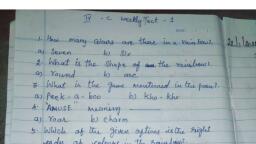 IV - C Weekly Test - 1
1. How many colours are there in a rainbow?
a) Seven b) Six
2. What is the shape of the rainbow?
a) round b) arc
3. What is the game mentioned in the poem?
a) Peek - a - boo b) kho - kho
4. "AMUSE" meaning
a) roar b) charm
5. Which of the given options is the right
order of colours in the rainbow?